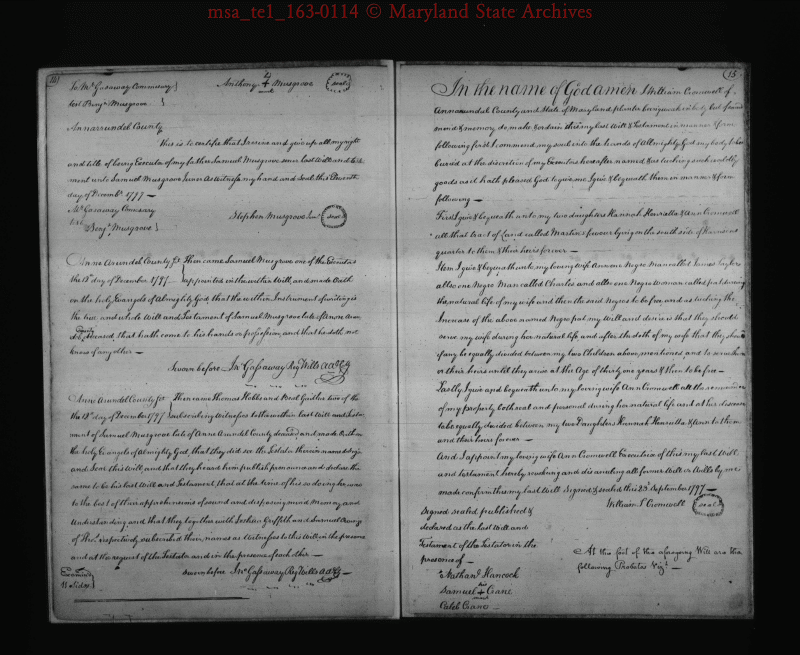 msa_te1_163-0114 © Maryland State Archives
To Mr Gasaway Commissary
test Benjn Musgrove
Anthony + Musgrove
mark
seal
Annarrundel County
This is to certifie that I revise and give up all my right
and title of being Executor of my father Samuel Musgrove senr last Will and test
ment unto Samuel Musgrove Junor As Witness my hand and Seal this Eleventh
day of Decemb. 1797 —
Mr Gasaway Comissary
test
Benj. Musgrove
Stephen Musgrove
seal
Anne Arundel County sct Then came Samuel Musgrove one of the Executors
the 12th day of December 1797 appointed in the within Will, and made Oath
on the holy Evangels of Almighty God that the within Instrument of writing is
the true and whole Will and Testament of Samuel Musgrove late of Anne Arun
County
deceased, that hath come to his hands or possession, and that he doth not
know of any other —
Sworn before Jn. Gassaway Reg Wills
Anne Arundel County sct Then came Thomas Hobbs and Brad Gaither two of the
the 12th day of December 1797 subscribing Witnesses to the within last Will and Testa
ment of Samuel Musgrove late of Anne Arundel County deceased and made Oath on
the holy Evangels of Almighty God, that they did see the Testator therein named sign
and Seal this Will, and that they heard him publish pronounce and declare the
same to be his last Will and Testament, that at the time of his so doing he was
to the best of their apprehensions of sound and disposing mind Memory and
Understanding and that they together with Joshua Griffith and Samuel
of Tho. respectively subscribed their names as Witnesses to this Will in the presence
and at the request of the Testator and in the presence of each other —
Sworn before Jno Gassaway Reg Wills
Examined
11 Sides
15
In the name of God amen I William Cromwell of
Annarundel County and State of Maryland planter being weak in body but of sound
mind & memory do make & ordain this my last Will & Testament in manner & form
following first I commend my soul into the hands of Almighty God my body to be
buried at the discretion of my Executrix hereafter named & as touching such worldly
goods as it hath pleased God to give me I give & bequeath them in manner & form
following —
First I give & bequeath unto my two daughters Hannah Henretta & Ann Cromwell
all that tract of Land called Martins lying on the south side of
quarter to them & their heirs forever —
Item I give & bequeath unto my loving wife Ann one Negro Man called James Taylor
allso one Negro Man called Charles and allso one Negro Woman called pat during
the natural life of my wife and then the said Negros to be free, and as touching the
Increase of the above named Negro pat my Will and desire is that they should
serve my wife during her natural life and after the death of my wife that they should
if any be equally divided between my two Children above mentioned, and to serve them
or their heirs until they arive at the Age of thirty one years & then to be free —
Lastly I give and bequeath unto my loving wife Ann Cromwell all the remainder
of my property both real and personal during her natural life and at her decease
to be equally divided between my two Daughters Hannah Henretta & Ann to them
and their heirs forever —
And I appoint my loving wife Ann Cromwell Executrix of this my last Will
and testament hereby revoking and disannuling all former Will or Wills by me
made confirm this my last Will Signed & sealed this 23d September 1797 —
William T Cromwell
seal
Signed sealed published &
declared as the last Will and
Testament of the Testator in the
presence of —
Nathanl Hancock
his
Samuel + Crane
mark
Caleb Crane
At the foot of the aforegoing Will are the
following Probates Vizt —